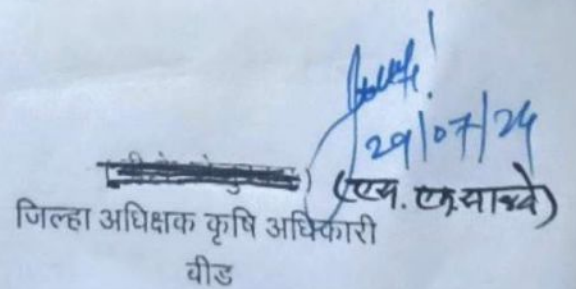 29/07/24
(एस. एम. साळवे)
जिल्हा अधिक्षक कृषि अधिकारी
बीड